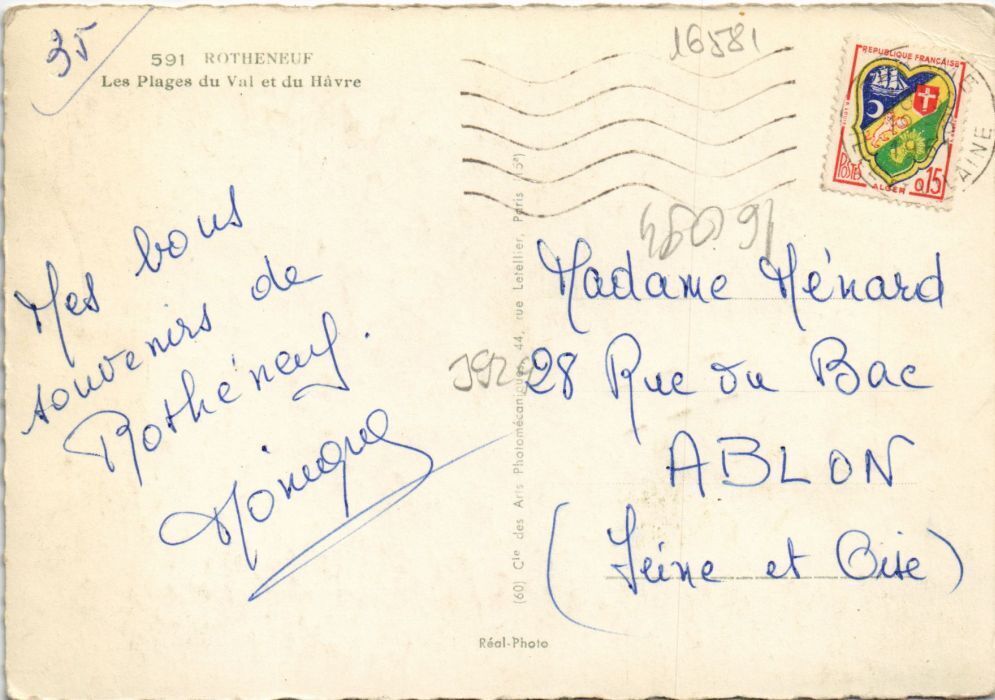 35
591 ROTHENEUF
Les Plages du Val et du Hâvre
Mes bons
souvenirs de
Rothéneuf.
Monique
(60) Cie des Arts Photomécaniques, 44, rue Letellier, Paris (15e)
Réal-Photo
16581
REPUBLIQUE FRANÇAISE
POSTES
ALGER
0,15
AINE
Madame Ménard
28 Rue du Bac
ABLON
(Seine et Oise)